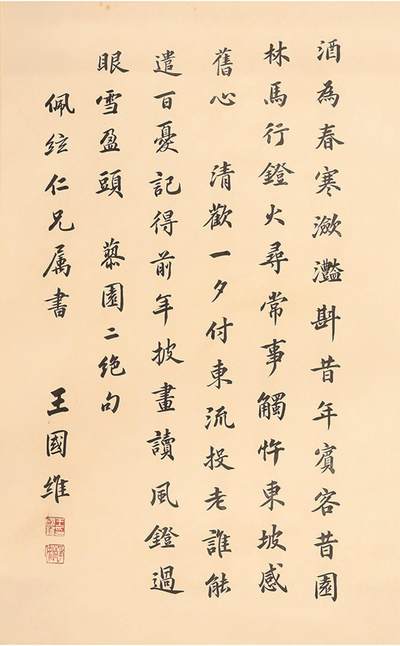 酒為春寒瀲灩斟昔年賓客昔園
林馬行鐙火尋常事觸忤東坡感
舊心 清歡一夕付東流投老誰能
遣百憂記得前年披畫讀風鐙過
眼雪盈頭 園二绝句
佩仁兄属書
王國維